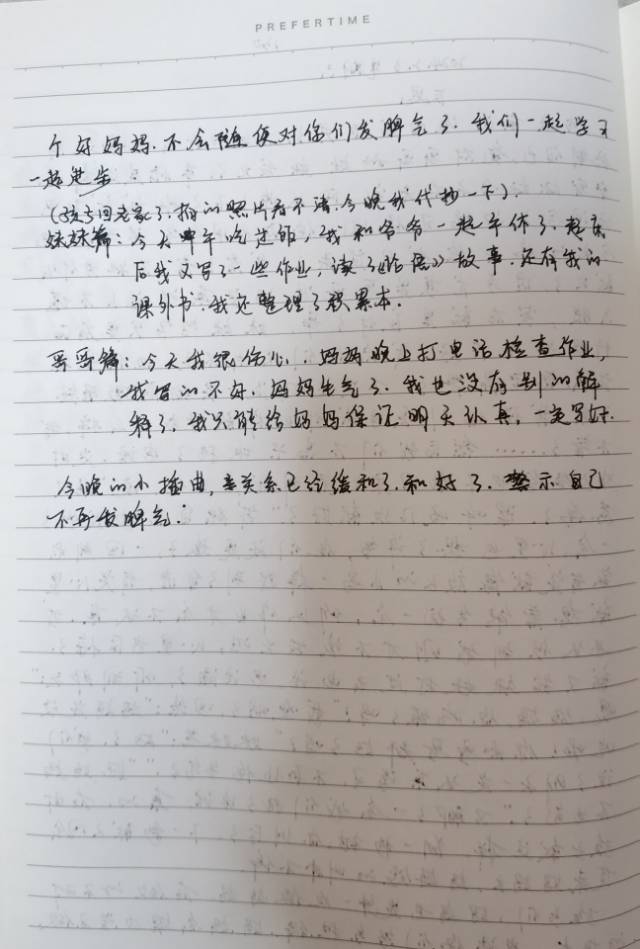 PREFERTIME
个好妈妈.不会随便对你们发脾气了.我们一起学习
一起进步.
(孩子回老家了.拍的照片看不清.今晚我代抄一下).
妹妹篇:今天中午吃过饭,我和爷爷一起午休了.起床
后我又写了一些作业,读了《论语》故事.还有我的
课外书.我还整理了积累本.
哥哥篇:今天我很伤心.妈妈晚上打电话检查作业,
我写的不好.妈妈生气了.我也没有别的解
释了.我只能给妈妈保证明天认真,一定写好.
今晚的小插曲,关系已经缓和了.和好了.警示自己
不再发脾气.